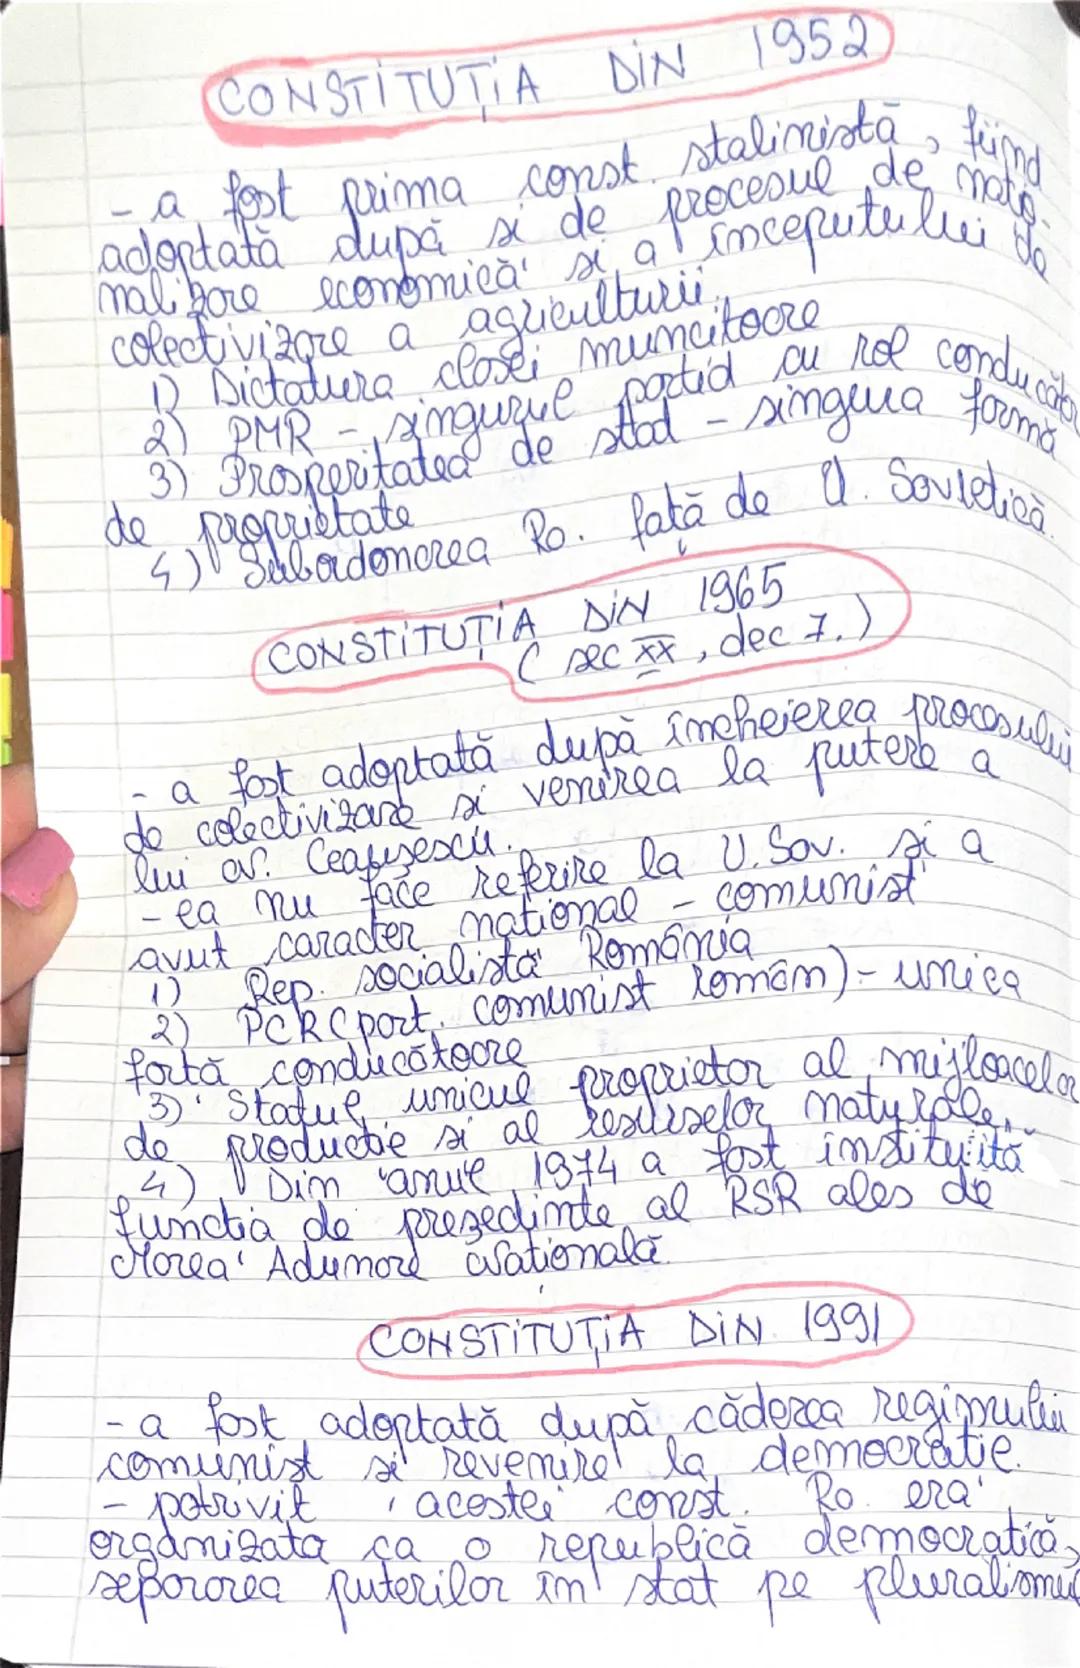 CONSTITUȚIA DIN 1952
- a fost prima const. stalinistă, fiind
adoptată după si de procesul de națio-
nalizare economică si a începutului de
colectivizare a agriculturii.
1) Dictatura clasei muncitoare
2) PMR - singurul partid cu rol conducător
3) Prosperitatea de stat - singura formă
de proprietate
4) Subordonarea Ro. față de U. Sovietică.
CONSTITUȚIA DIN 1965
( sec XX, dec 7.)
- a fost adoptată după încheierea procesului
de colectivizare si venirea la putere a
lui N. Ceaușescu.
- ea nu face referire la U. Sov. și a
avut caracter național - comunist
1) Rep. socialistă România
2) PCR (part. comunist român) - unica
forță conducătoare
3) Statul, unicul proprietar al mijloacelor
de producție si al resurselor naturale.
4) Din anul 1974 a fost instituită
funcția de președinte al RSR ales de
Marea Adunare Națională.
CONSTITUȚIA DIN 1991
- a fost adoptată după căderea regimului
comunist si revenire la democrație.
- potrivit acestei const. Ro. era
organizata ca o republică democratică,
separarea puterilor în stat pe pluralismul